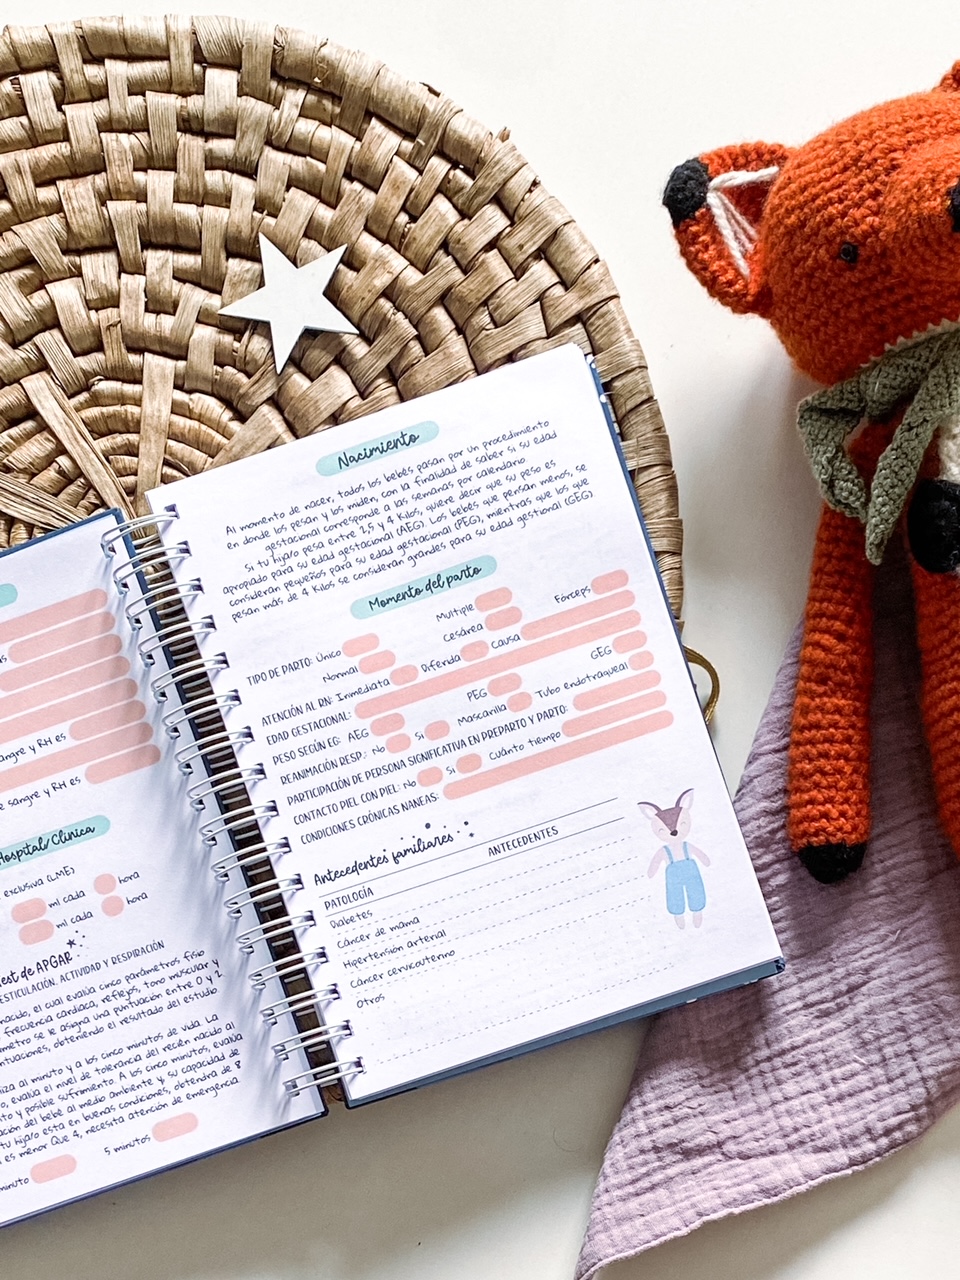 s
sangre y RH es
e sangre y RH es
Hospital Clínica
exclusiva (LME)
ml cada hora
ml cada hora
Test de APGAR
GESTICULACIÓN, ACTIVIDAD Y RESPIRACIÓN
nacido, el cual evalúa cinco parámetros fisio
frecuencia cardíaca, reflejos, tono muscular y
metro se le asigna una puntuación entre 0 y 2
ntuaciones, obteniendo el resultado del estudio
iza al minuto y a los cinco minutos de vida. La
o, evalúa el nivel de tolerancia del recién nacido al
nto y posible sufrimiento. A los cinco minutos, evalúa
ción del bebé al medio ambiente y su capacidad de
tu hijo/o esta en buenas condiciones, obtendrá de 8
es menor Que 4, necesita atención de emergencia
minuto 5 minutos
Nacimiento
Al momento de nacer, todos los bebés pasan por un procedimiento
en donde los pesan y los miden, con la finalidad de saber si su edad
gestacional corresponde a las semanas por calendario.
Si tu hijo/o pesa entre 2,5 y 4 kilos, quiere decir que su peso es
apropiado para su edad gestacional (AEG). Los bebés que pensan menos, se
consideran pequeños para su edad gestacional (PEG), mientras que los que
pesan más de 4 kilos se consideran grandes para su edad gestional (GEG)
Momento del parto
TIPO DE PARTO: Único Multiple Fórceps
Normal Cesárea Causa
ATENCIÓN AL RN: Inmediata Diferida
EDAD GESTACIONAL:
PESO SEGÚN EG: AEG PEG GEG
REANIMACIÓN RESP.: No Si Mascarilla Tubo endotraqueal
PARTICIPACIÓN DE PERSONA SIGNIFICATIVA EN PREPARTO Y PARTO:
CONTACTO PIEL CON PIEL: No Si Cuánto tiempo
CONDICIONES CRÓNICAS NANEAS:
Antecedentes familiares
PATOLOGÍA ANTECEDENTES
Diabetes
Cáncer de mama
Hipertensión arterial
Cáncer cervicouterino
Otros